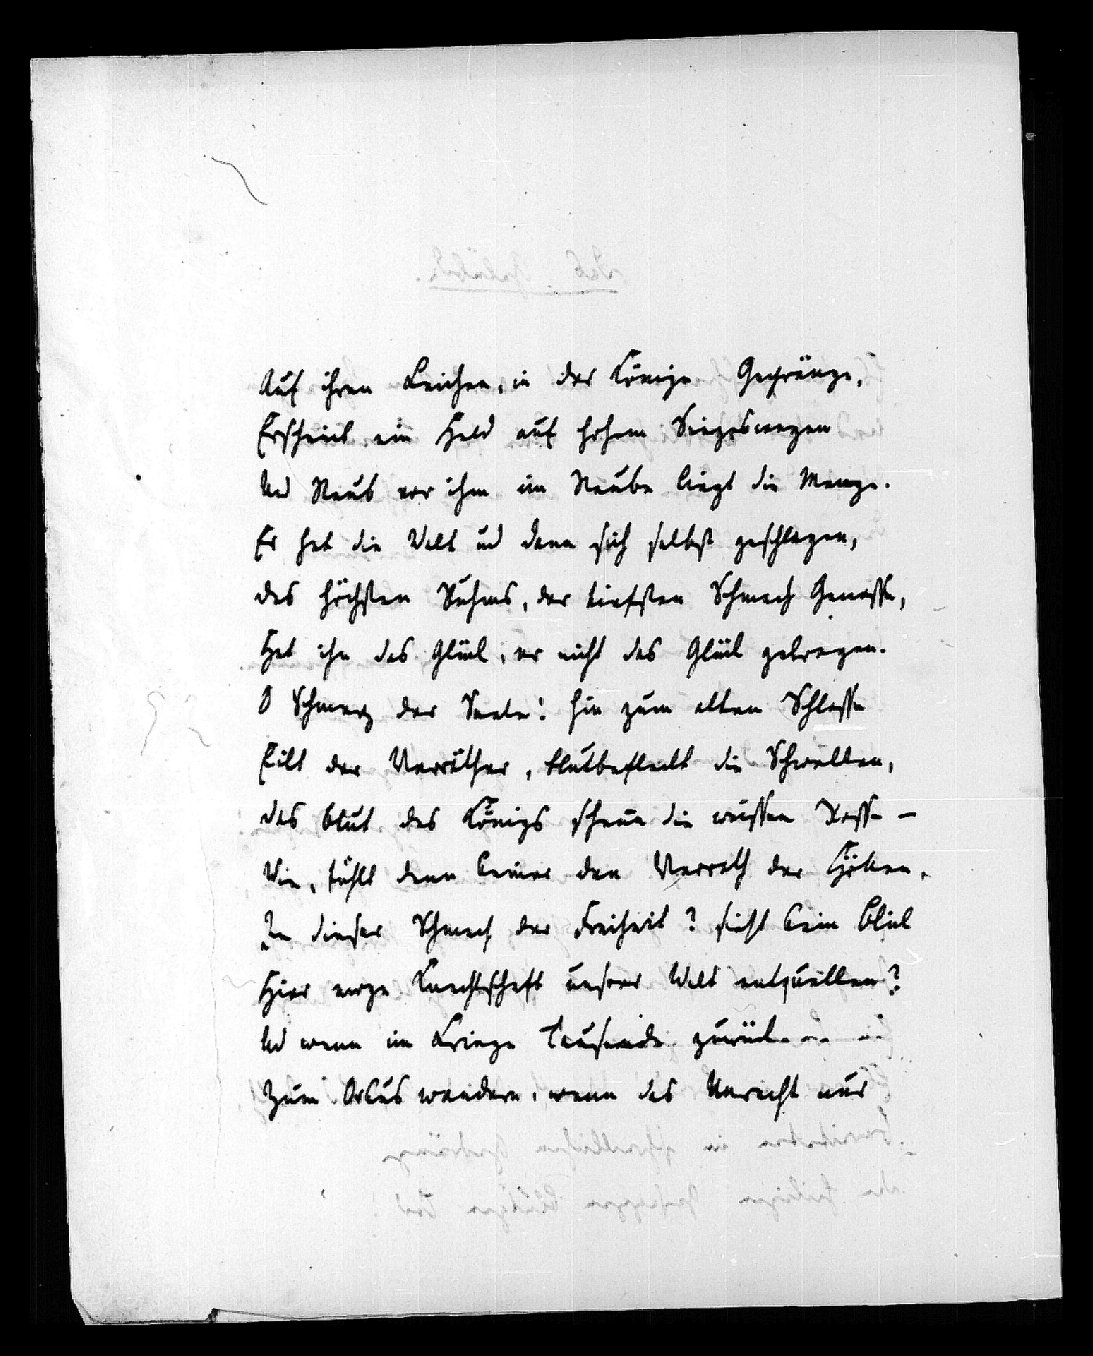 Auf ihren Leichen, in der Könige Gepränge,
Erscheint ein Held auf hohem Siegeswagen
Und Staub vor ihm im Staube liegt die Menge.
Er hat die Welt und dann sich selbst geschlagen,
Des höchsten Ruhms, der tiefsten Schmach Genosse,
Hat ihn das Glück, er nicht das Glük getragen.
O Schmerz der Seele! hin zum alten Schlosse
Eilt der Verräther, blutbefleckt die Schwellen,
Das Blut des Königs scheun die Rosse –
Wie, fühlt denn keiner den Verrath der
In dieser Schmach der Freiheit? sieht kein Blick
Hier ewge Knechtschaft unsrer Welt entquellen?
Und wenn im Kriege Tausende zurück
Zum Orkus wandern, wenn das Unrecht nur